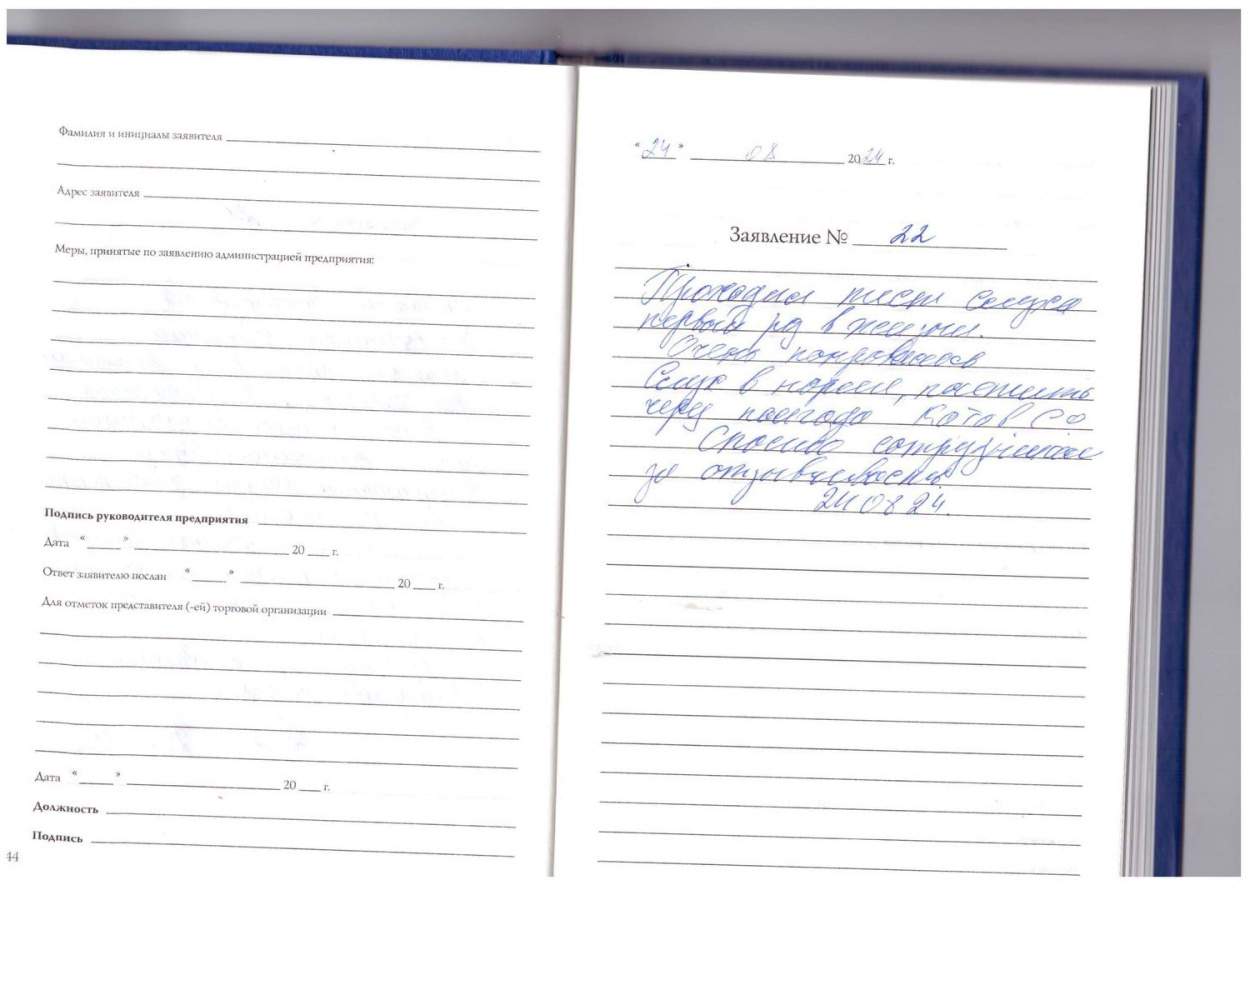 Фамилия и инициалы заявителя
Адрес заявителя
Меры, принятые по заявлению администрацией предприятия:
Подпись руководителя предприятия
Дата "____" ____ 20 ___ г.
Ответ заявителю послан "____" ____ 20 ___ г.
Для отметок представителя (-ей) торговой организации
Дата "____" ____ 20 ___ г.
Должность
Подпись
44
"24" 08 2024 г.
Заявление № 22
Проходил тест слуха
первый раз в жизни.
Очень понравилось
Слух в норме,
через полгода Котов СЮ
Спасибо сотрудникам
за отзывчивость
24 08 24.